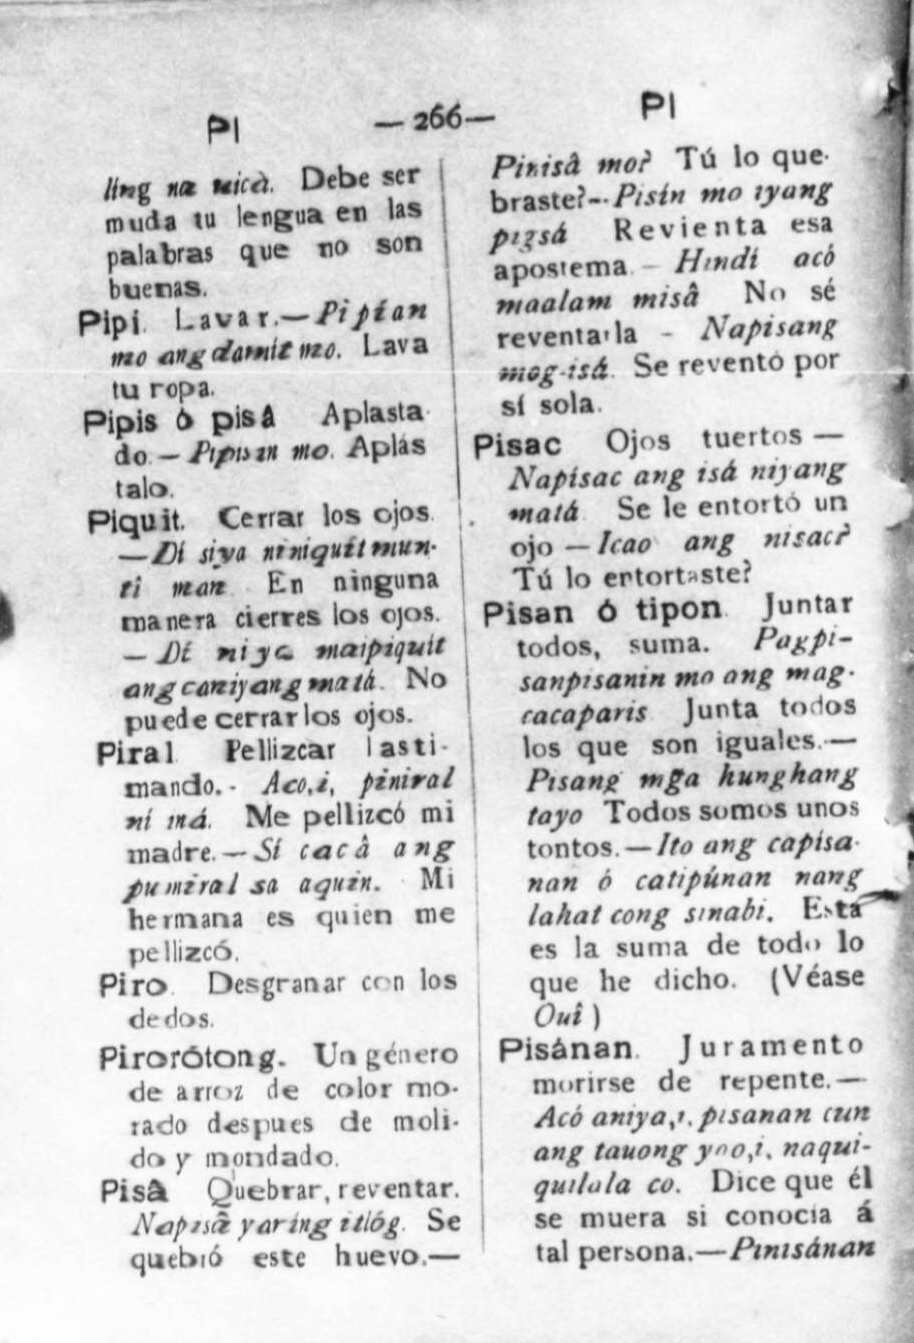 PI —266— PI
ling na uicà. Debe ser
muda tu lengua en las
palabras que no son
buenas.
Pipi. Lavar.—Pipían
mo ang damit mo. Lava
tu ropa.
Pipis ó pisâ Aplasta-
do.—Pipisin mo. Aplás
talo.
Piquit. Cerrar los ojos.
—Dí siya niniquit mun-
ti man En ninguna
manera cierres los ojos.
—Dí niya maipiquit
ang caniyang matá. No
puede cerrar los ojos.
Piral Pellizcar lasti-
mando.- Aco,i, piniral
ní iná. Me pellizcó mi
madre.—Sí cacâ ang
pumiral sa aquin. Mi
hermana es quien me
pellizcó.
Piro. Desgranar con los
dedos.
Pirorótong. Un género
de arroz de color mo-
rado despues de moli-
do y mondado.
Pisâ Quebrar, reventar.
Napisâ yaríng itlóg. Se
quebió este huevo.—
Pinisâ mo? Tú lo que-
braste?--Pisín mo iyang
pigsá Revienta esa
apostema.—Hindí acó
maalam misâ No sé
reventarla - Napisang
mag-isá. Se reventó por
sí sola.
Pisac Ojos tuertos —
Napísac ang isá niyang
matá Se le entortó un
ojo —Icao ang nisac?
Tú lo entortaste?
Pisan ó tipon. Juntar
todos, suma. Pagpi-
sanpisanin mo ang mag-
cacaparis Junta todos
los que son iguales.—
Pisang mga hunghang
tayo Todos somos unos
tontos.—Ito ang capisa-
nan ó catipúnan nang
lahat cong sinabi. Esta
es la suma de todo lo
que he dicho. (Véase
Ouî)
Pisánan. Juramento
morirse de repente.—
Acó aniya,i, pisanan cun
ang tauong yoo,i, naqui-
quilala co. Dice que él
se muera si conocia á
tal persona.—Pinisánan